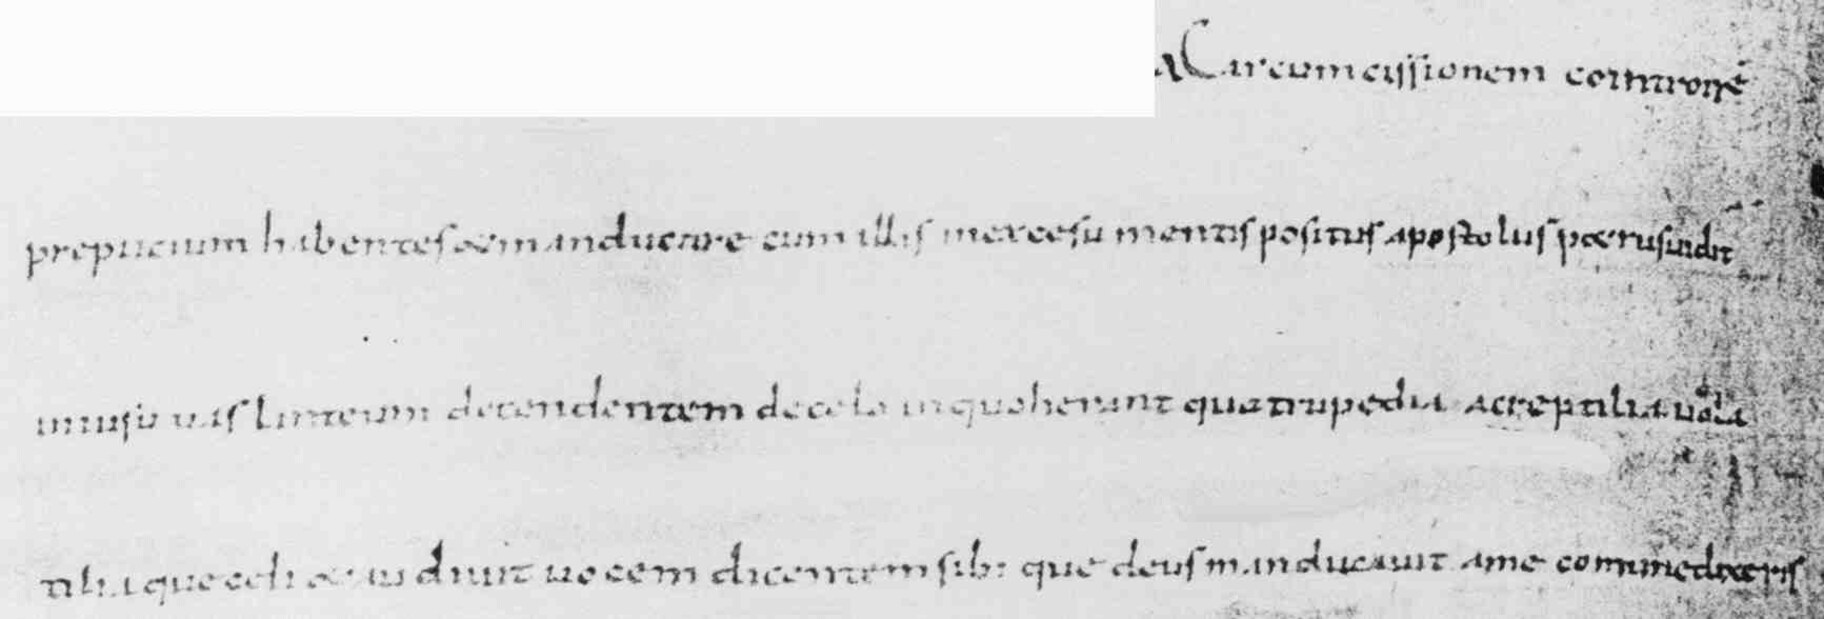 a Circumcissionem contronrẽ
prepucium habentes & manducare cum illis inexcesu mentis positus apostolus p&rus uidit
in uisu uas linteum decendentem de celo in quo herant quatrupedia ac reptilia uola
tiliaque celi & audiuit uocem dicentem sibi que deus manducauit ame commed&ris